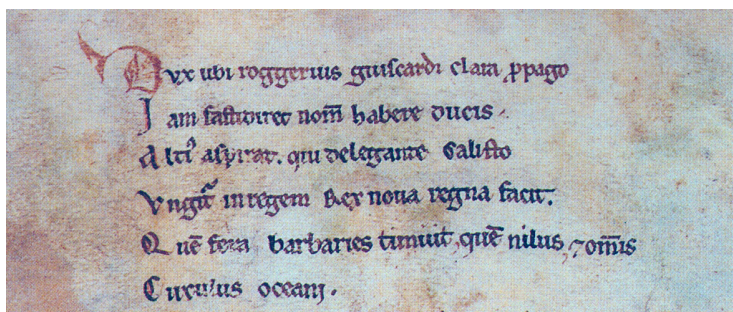 Dux ubi roggerius guiscardi clara ꝓpago
Iam fastidiret nom̄ habere ducis.
Altiꝰ aspirat. qui delegante Calisto
Vngitᷣ in regem Rex noua regna facit.
Quē fera barbaries timuit, quē nilus, ⁊ om̄is
Circulus oceani.